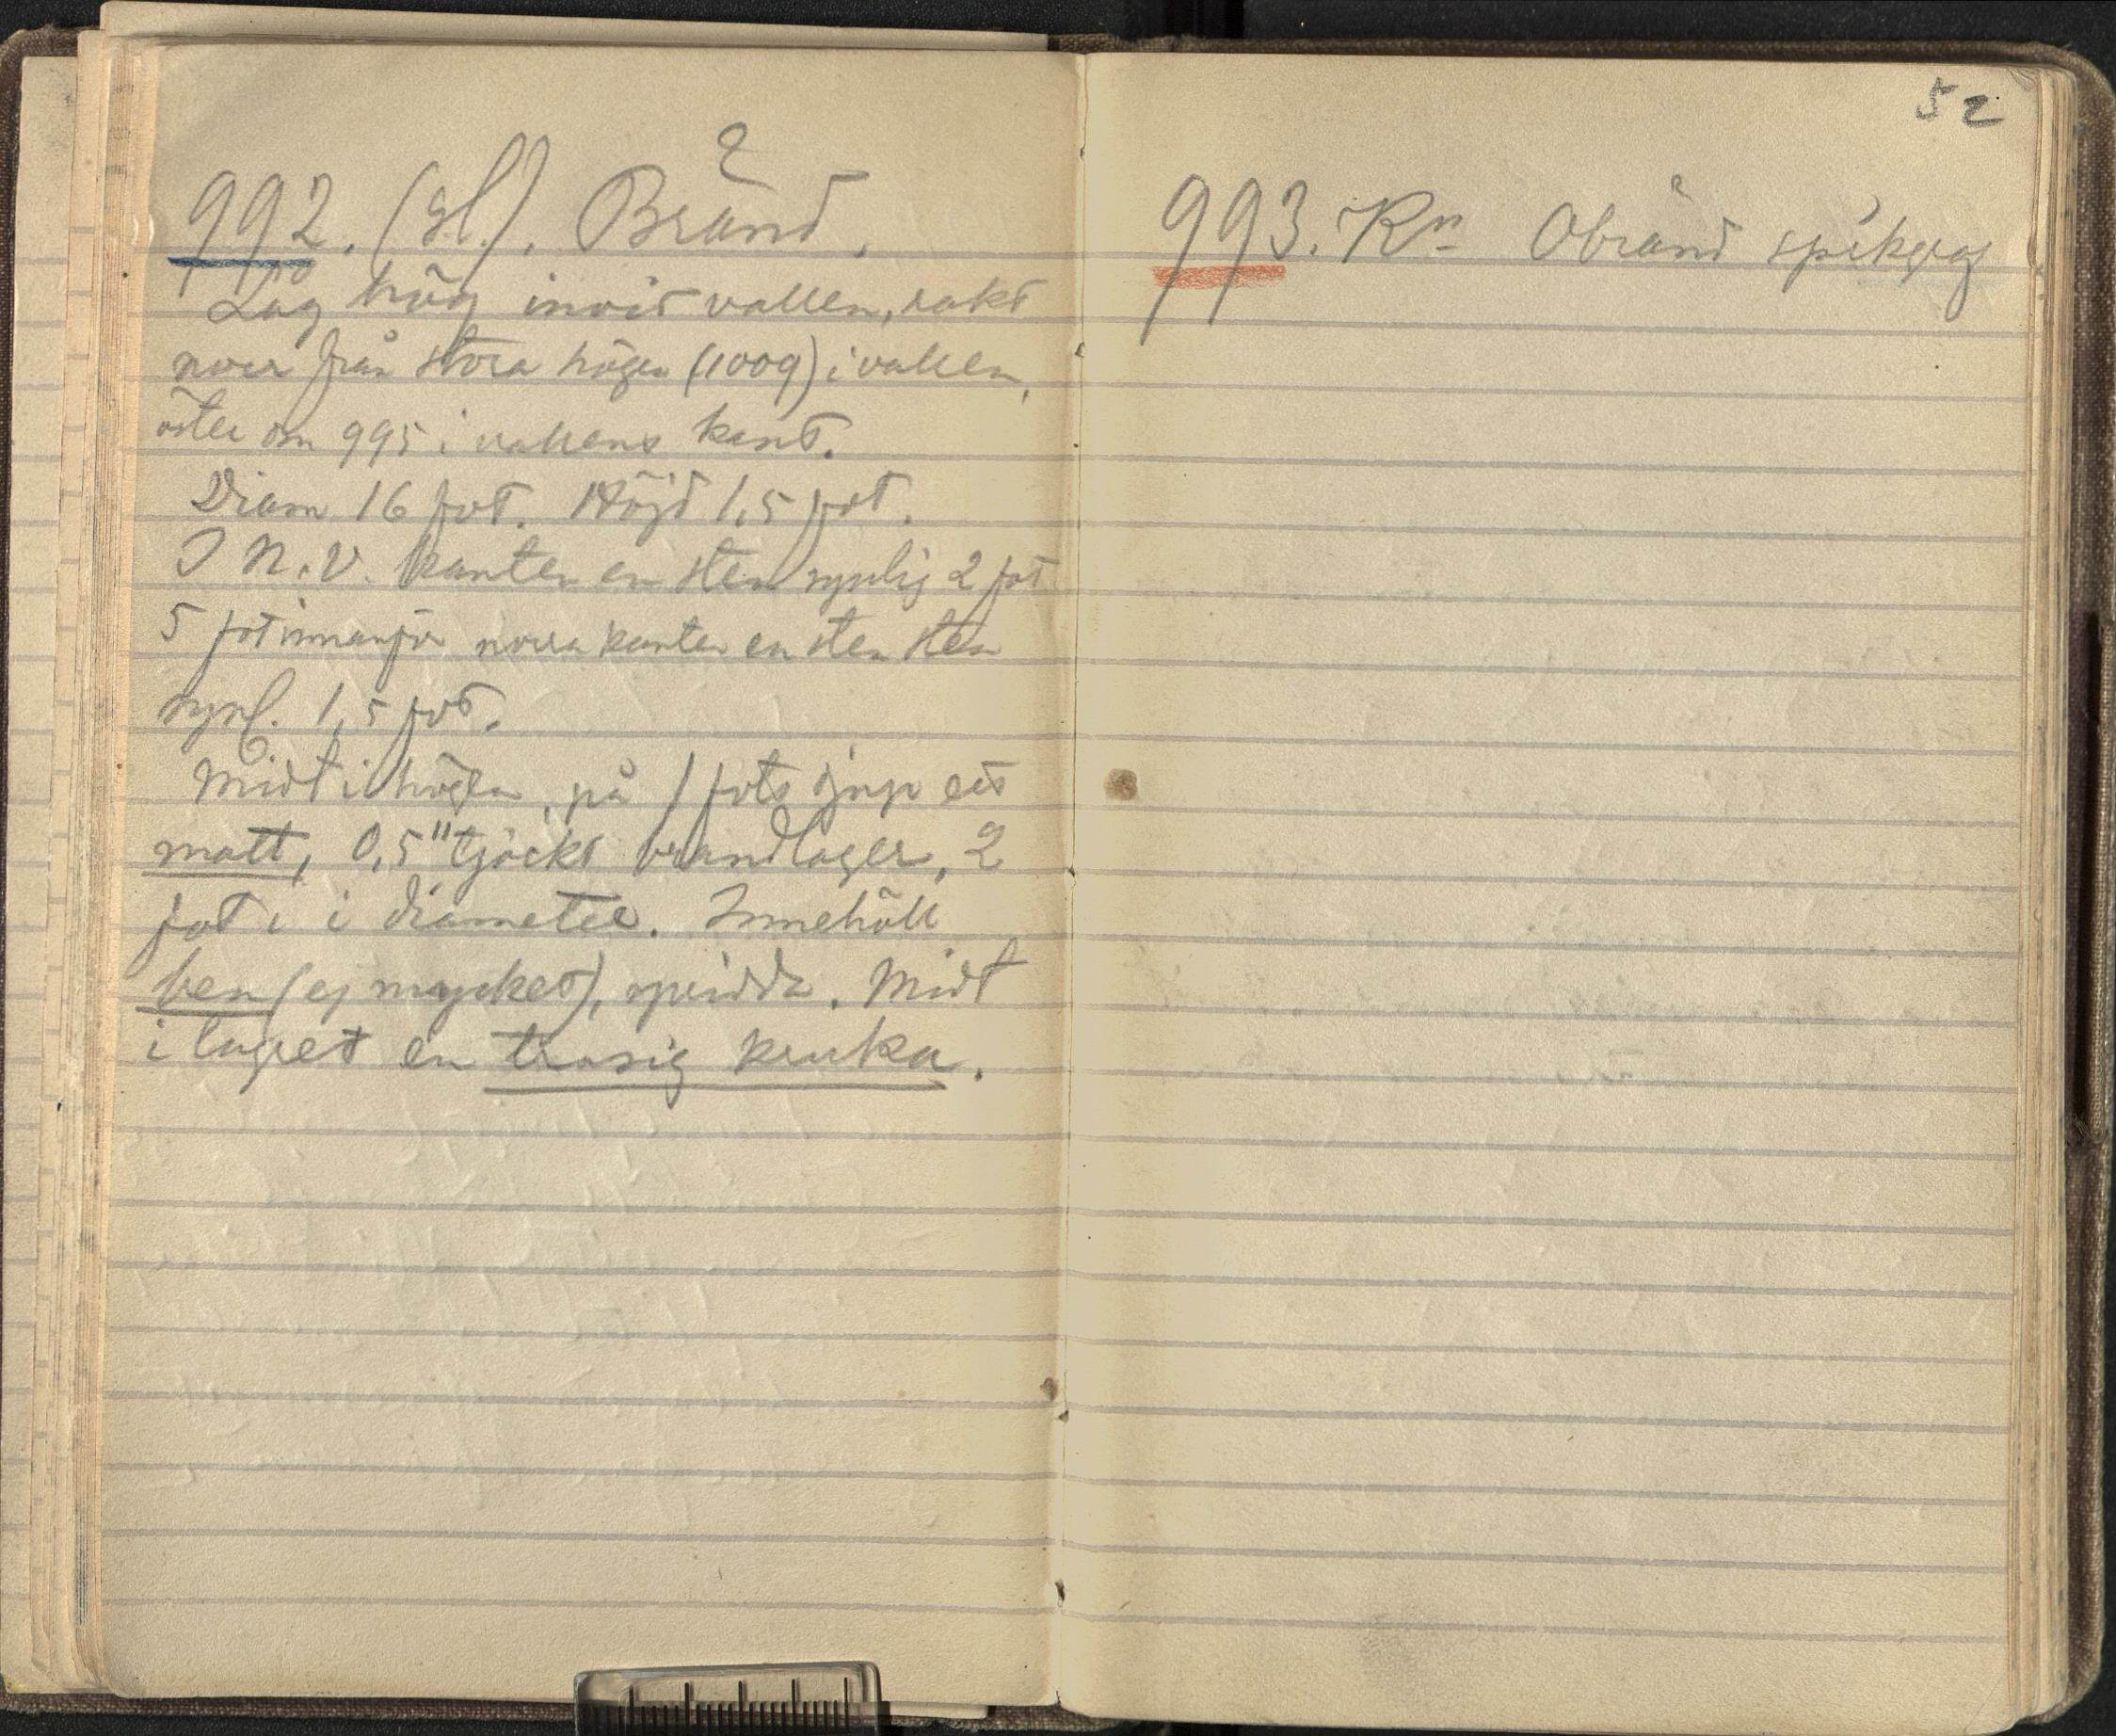 992. (gl.). Bränd.
Låg hög invid vallen, rakt
norr från stora högen (1009) i vallen,
öster om 995 i vallens kant.
Diam 16 fot. Höjd 1,5 fot.
I N.V. kanten en sten synlig 2 fot
5 fot innanför norra kanten en sten sten
synl. 1,5 fot.
Midt i högen, på 1 fots djup ett
matt, 0,5" tjockt brandlager, 2
fot i i diameter. Innehöll
ben (ej mycket), spridda. Midt
i lagret en trasig kruka.
52
993. Kr Obränd spikgraf